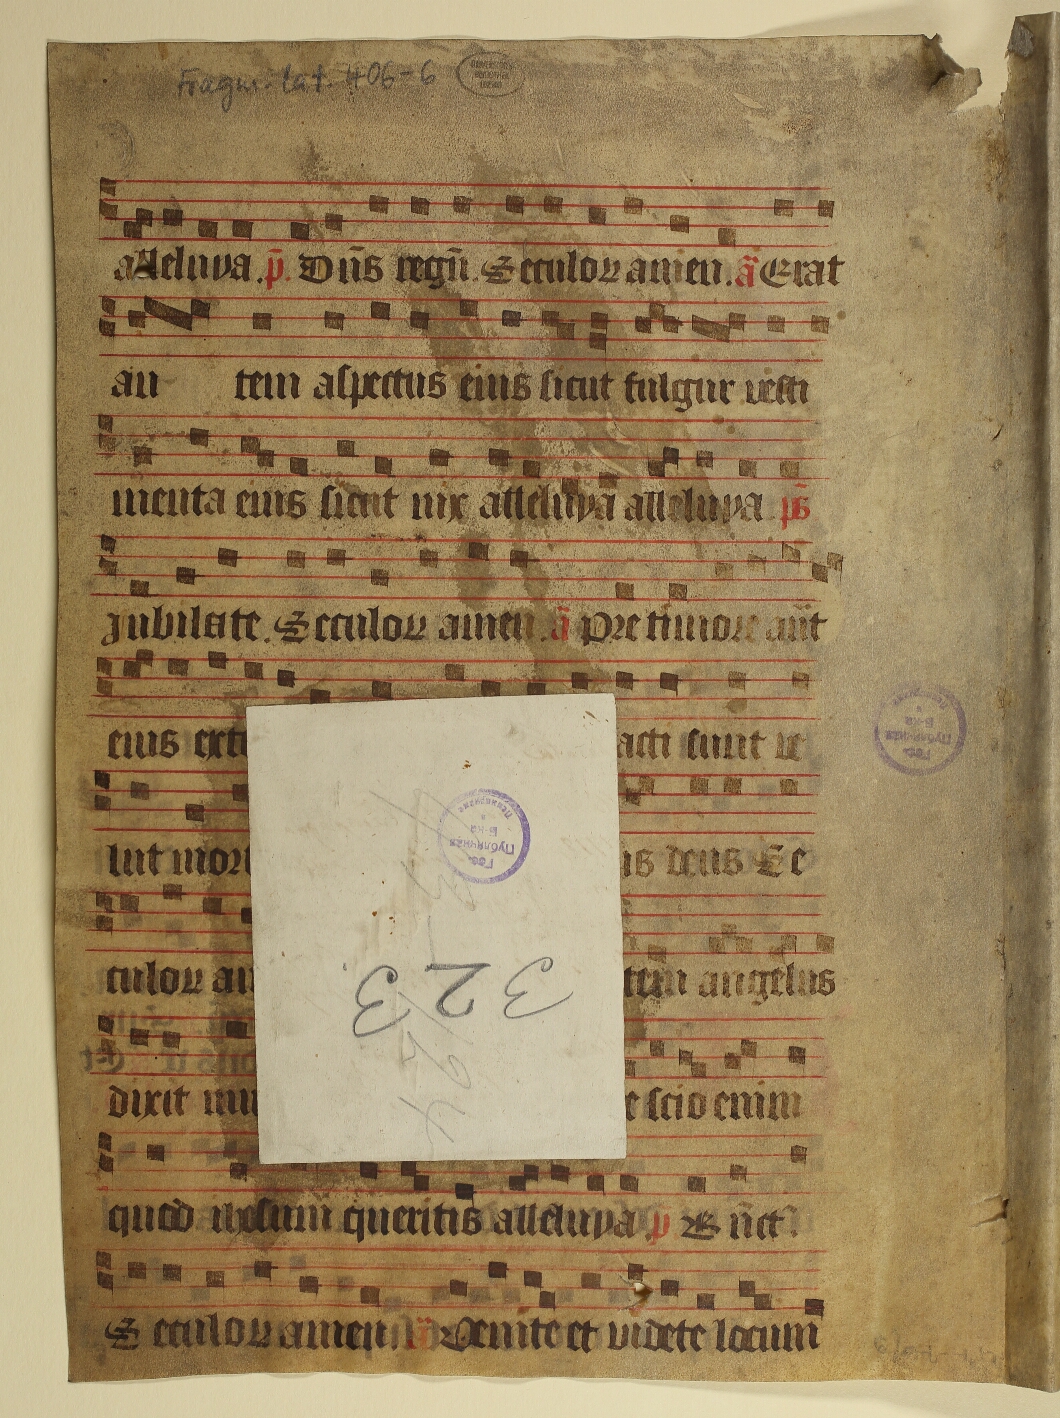 Fragm. lat. 406-6
alleluya. p̄. Dn̄s regn̄. Seculoꝝ amen. ā Erat
au tem aspectus eius sicut fulgur vesti
menta eius sicut nix alleluya alleluya ps̄
Jubilate. Seculoꝝ amen. ā Pre timore aūt
eius ext acti sunt ve
lut mort us deus Se
culoꝝ am tem angelus
dixit mu e scio enim
quod ihesum queritis alleluya. p Bn̄ct
Seculoꝝ amen. ā Venite et videte locum
Гос. Публичная Б-ка
Гос. Публичная Б-ка
323